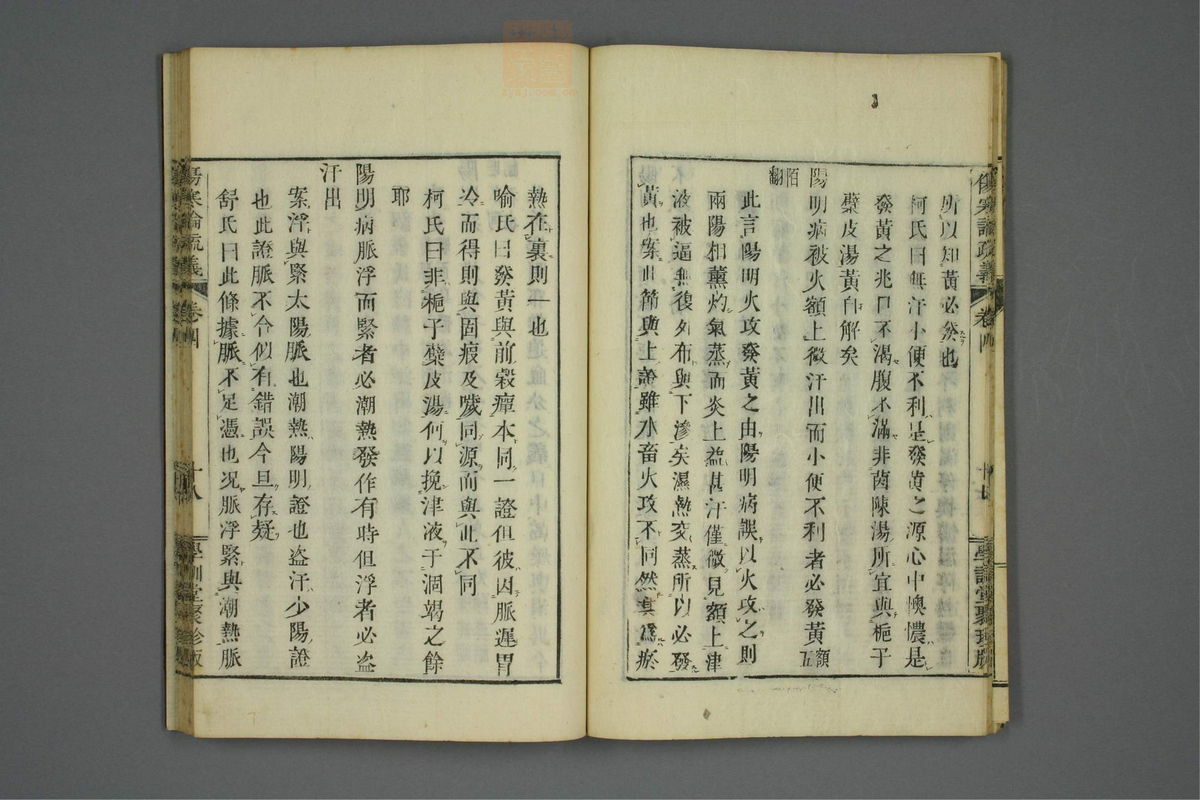 傷寒論疏義 卷四 十七 學訓堂聚珍版
所以知黃必發也
柯氏曰無汗小便不利是發黃之源心中懊憹是
發黃之兆口不渴腹不滿非茵陳湯所宜與梔子
蘗皮湯黃自解矣
陽明病被火額上微汗出而小便不利者必發黃額五
陌翻
此言陽明火攻發黃之由陽明病誤以火攻之則
兩陽相薰灼氣蒸而炎上益甚汗僅微見額上津
液被逼無復外布與下滲矣濕熱交蒸所以必發
黃也案此節與上證雖水畜火攻不同然其爲瘀
熱在裏則一也
喻氏曰發黃與前穀癉本同一證但彼因脈遲胃
冷而得則與固瘕及噦同源而與此不同
柯氏曰非梔子蘗皮湯何以挽津液于涸竭之餘
耶
陽明病脈浮而緊者必潮熱發作有時但浮者必盜
汗出
案浮與緊太陽脈也潮熱陽明證也盜汗少陽證
也此證脈不合似有錯誤今且存疑
舒氏曰此條據脈不足憑也况脈浮緊與潮熱脈
傷寒論疏義 卷四 十八 學訓堂聚珍版